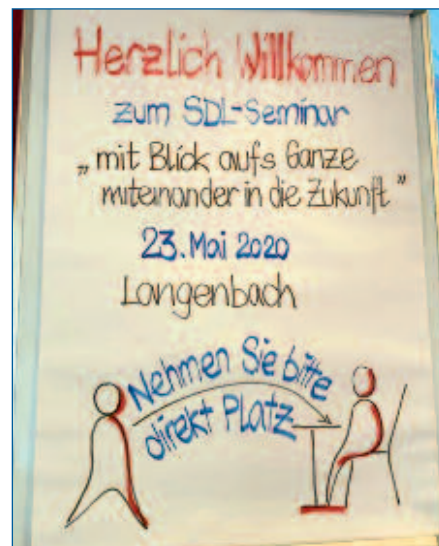 Herzlich Willkommen
zum SDL-Seminar
„mit Blick aufs Ganze
miteinander in die Zukunft"
23. Mai 2020
Langenbach
Nehmen Sie bitte
direkt Platz